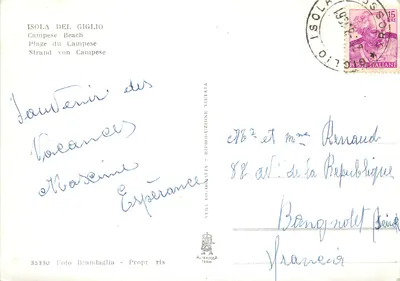 ISOLA DEL GIGLIO
Campese Beach
Plage du Campese
Strand von Campese
Souvenir des
Vacances
Maxime
Espérance
VERA FOTOGRAFIA - RIPRODUZIONE VIETATA
15
ITALIANE
ISOLA
GIGLIO
Mr et mme Renaud
88 av. de la République
Bagnolet (Seine
Francia